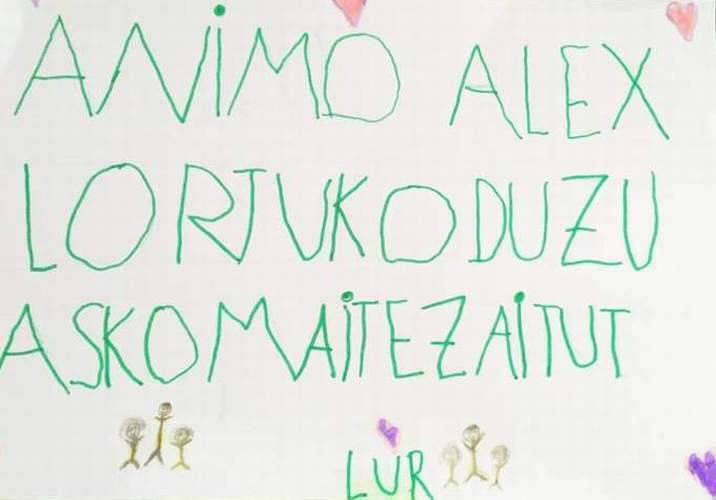 ANiMO ALEX
LORTUKO DUZU
ASKO MAiTE ZAiTUT
LUR